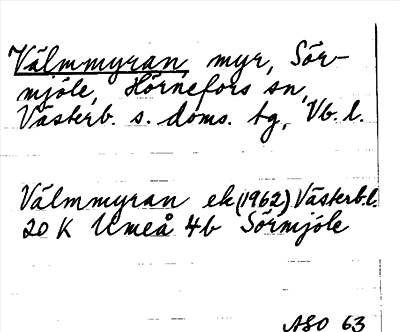 Välmmyran, myr, Sör-
mjöle, Hörnefors sn,
Västerb. s. doms. tg, Vb. l.
Välmmyran ek (1962) Västerb.l.
20 K Umeå 4b Sörmjöle
ASO 63